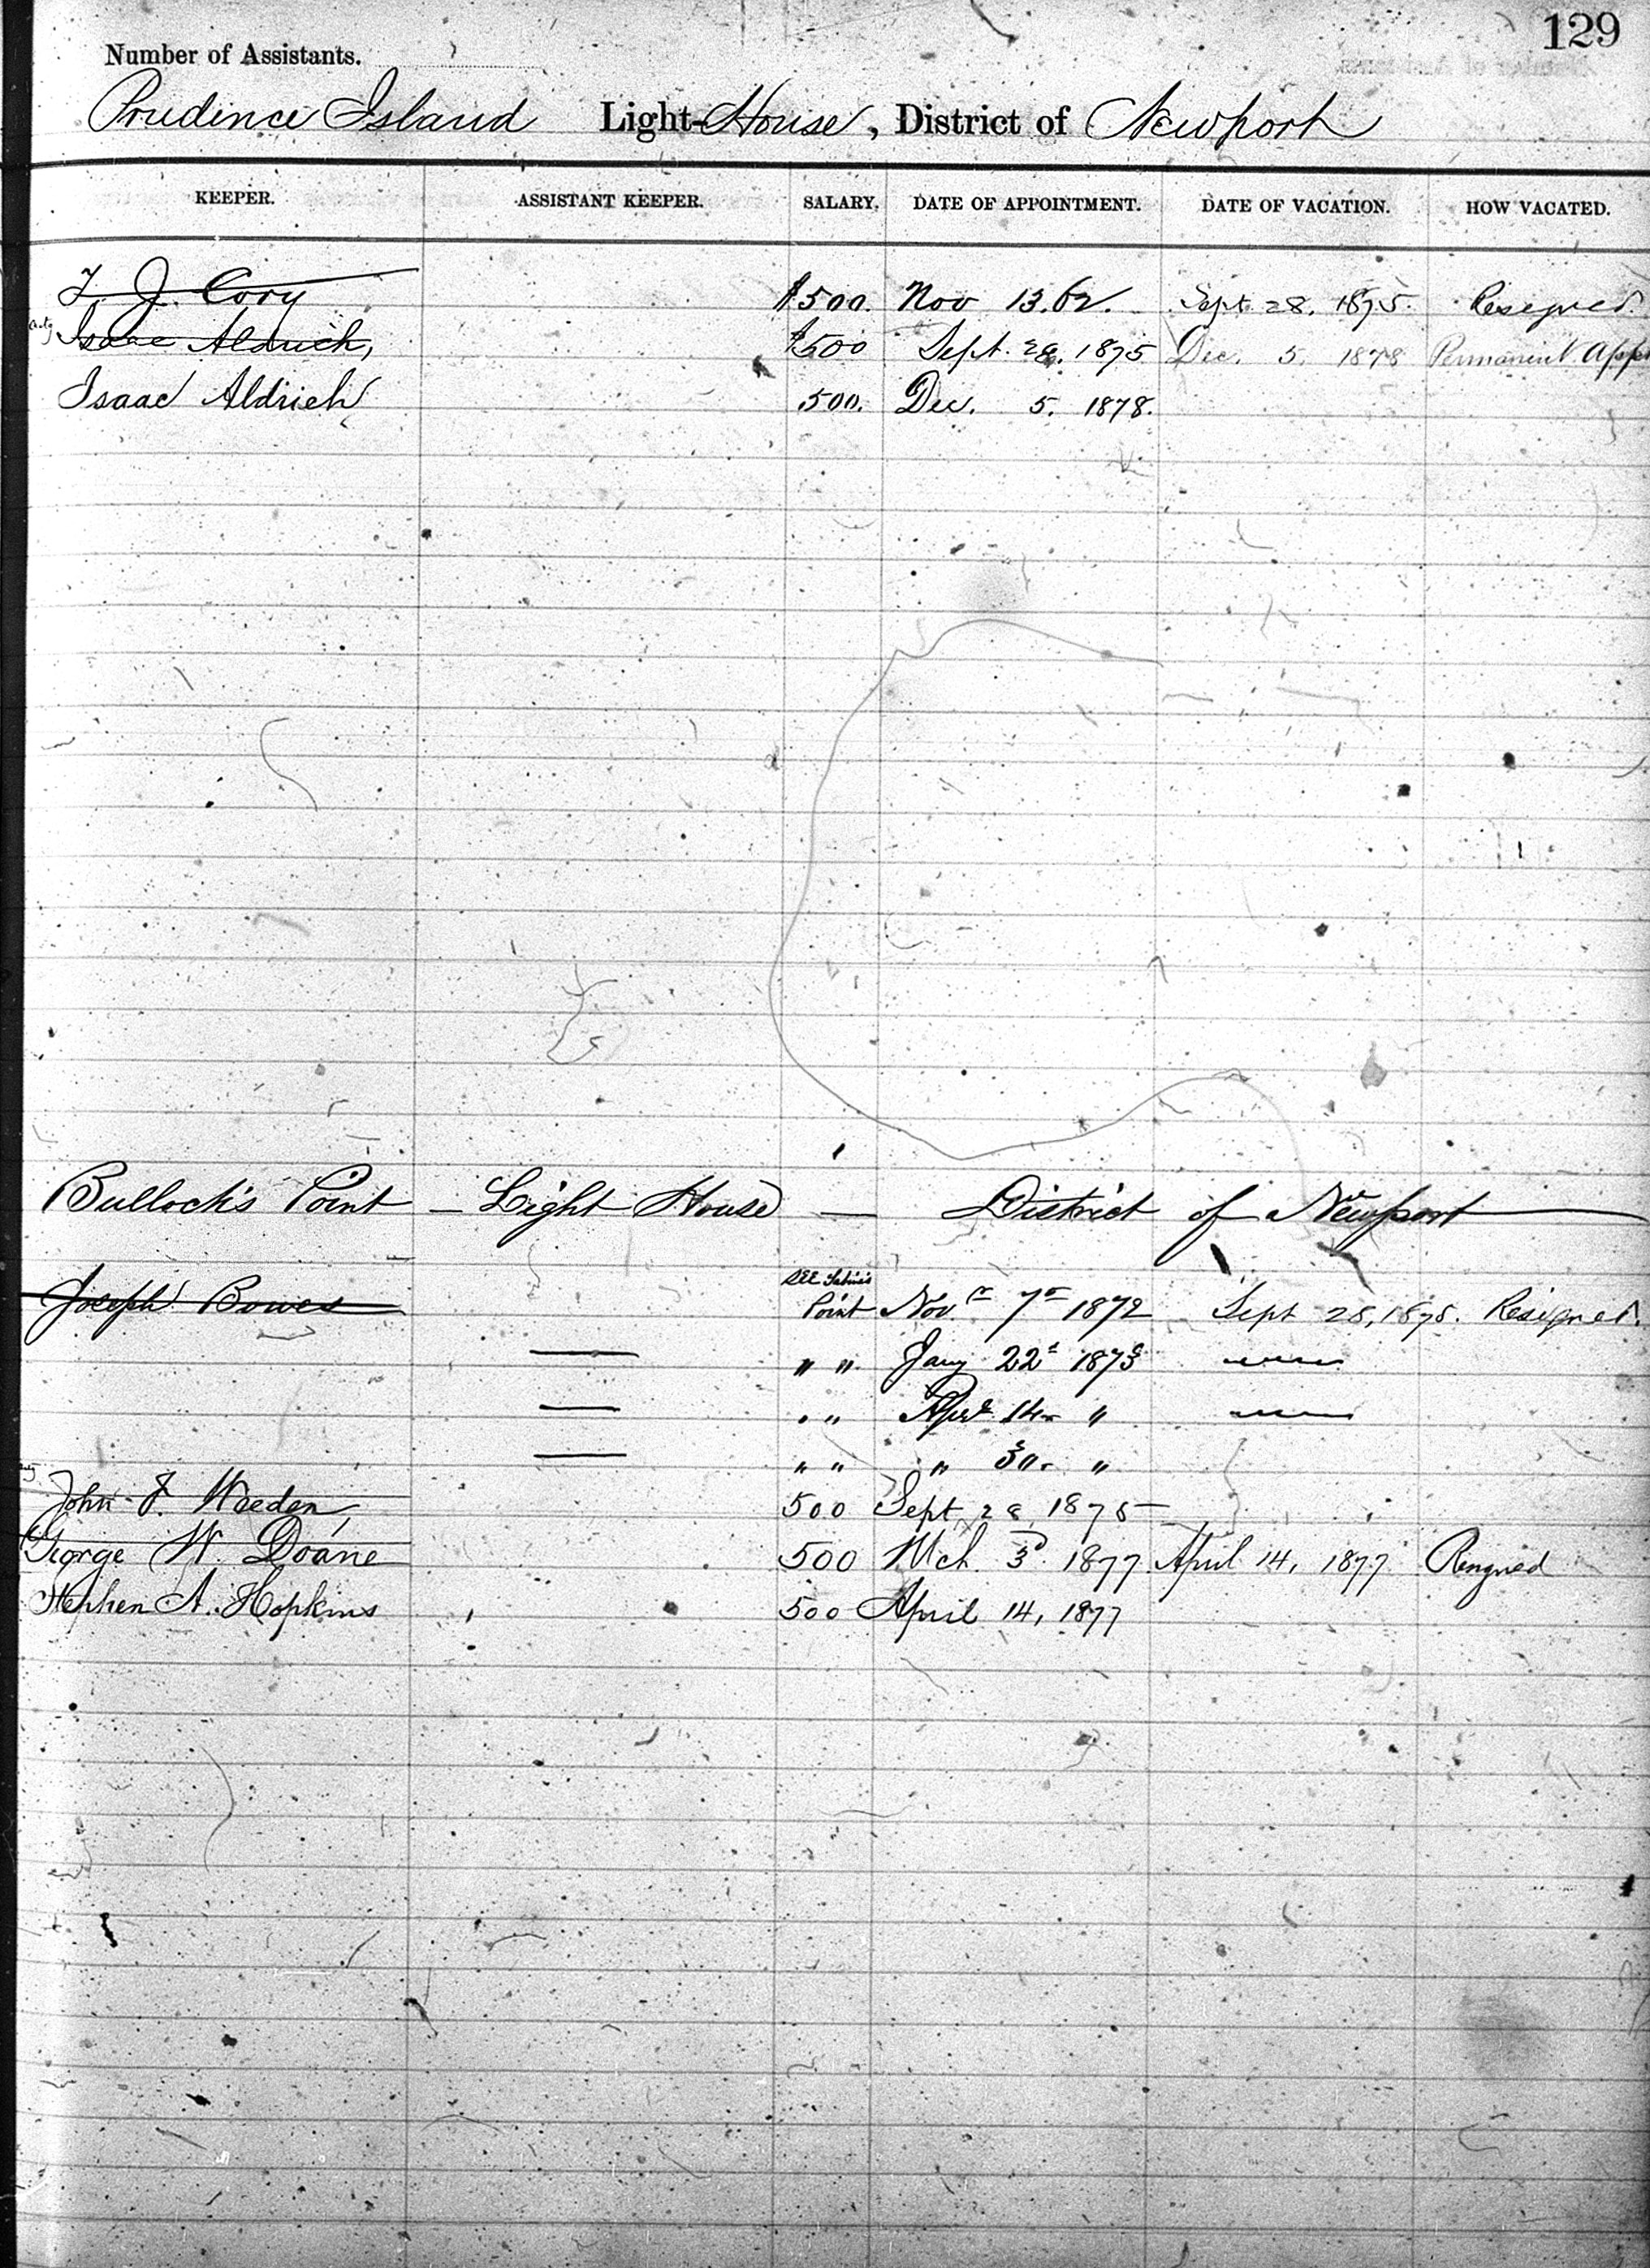 129
Number of Assistants.
Prudence Island Light-House, District of Newport
KEEPER. ASSISTANT KEEPER. SALARY. DATE OF APPOINTMENT. DATE OF VACATION. HOW VACATED.
T. J. Cory $500. Nov 13. 62. Sept 28, 1875. Resigned.
Actg Isaac Aldrich, $500 Sept. 28, 1875 Dec. 5. 1878 Permanent App
Isaac Aldrich 500. Dec. 5. 1878.
Bullock's Point — Light House — District of Newport
Joseph Bowes See Sabin's Point Nov. 7 1872 Sept 28, 1875. Resigned.
— " " Jany 22d 1873 —
— " " Aprl 14 " —
— " " " 30 "
Actg John J. Weeden, 500 Sept 28 1875
George W. Doane 500 Mch. 3d 1877 April 14, 1877 Resigned
Stephen A. Hopkins 500 April 14, 1877